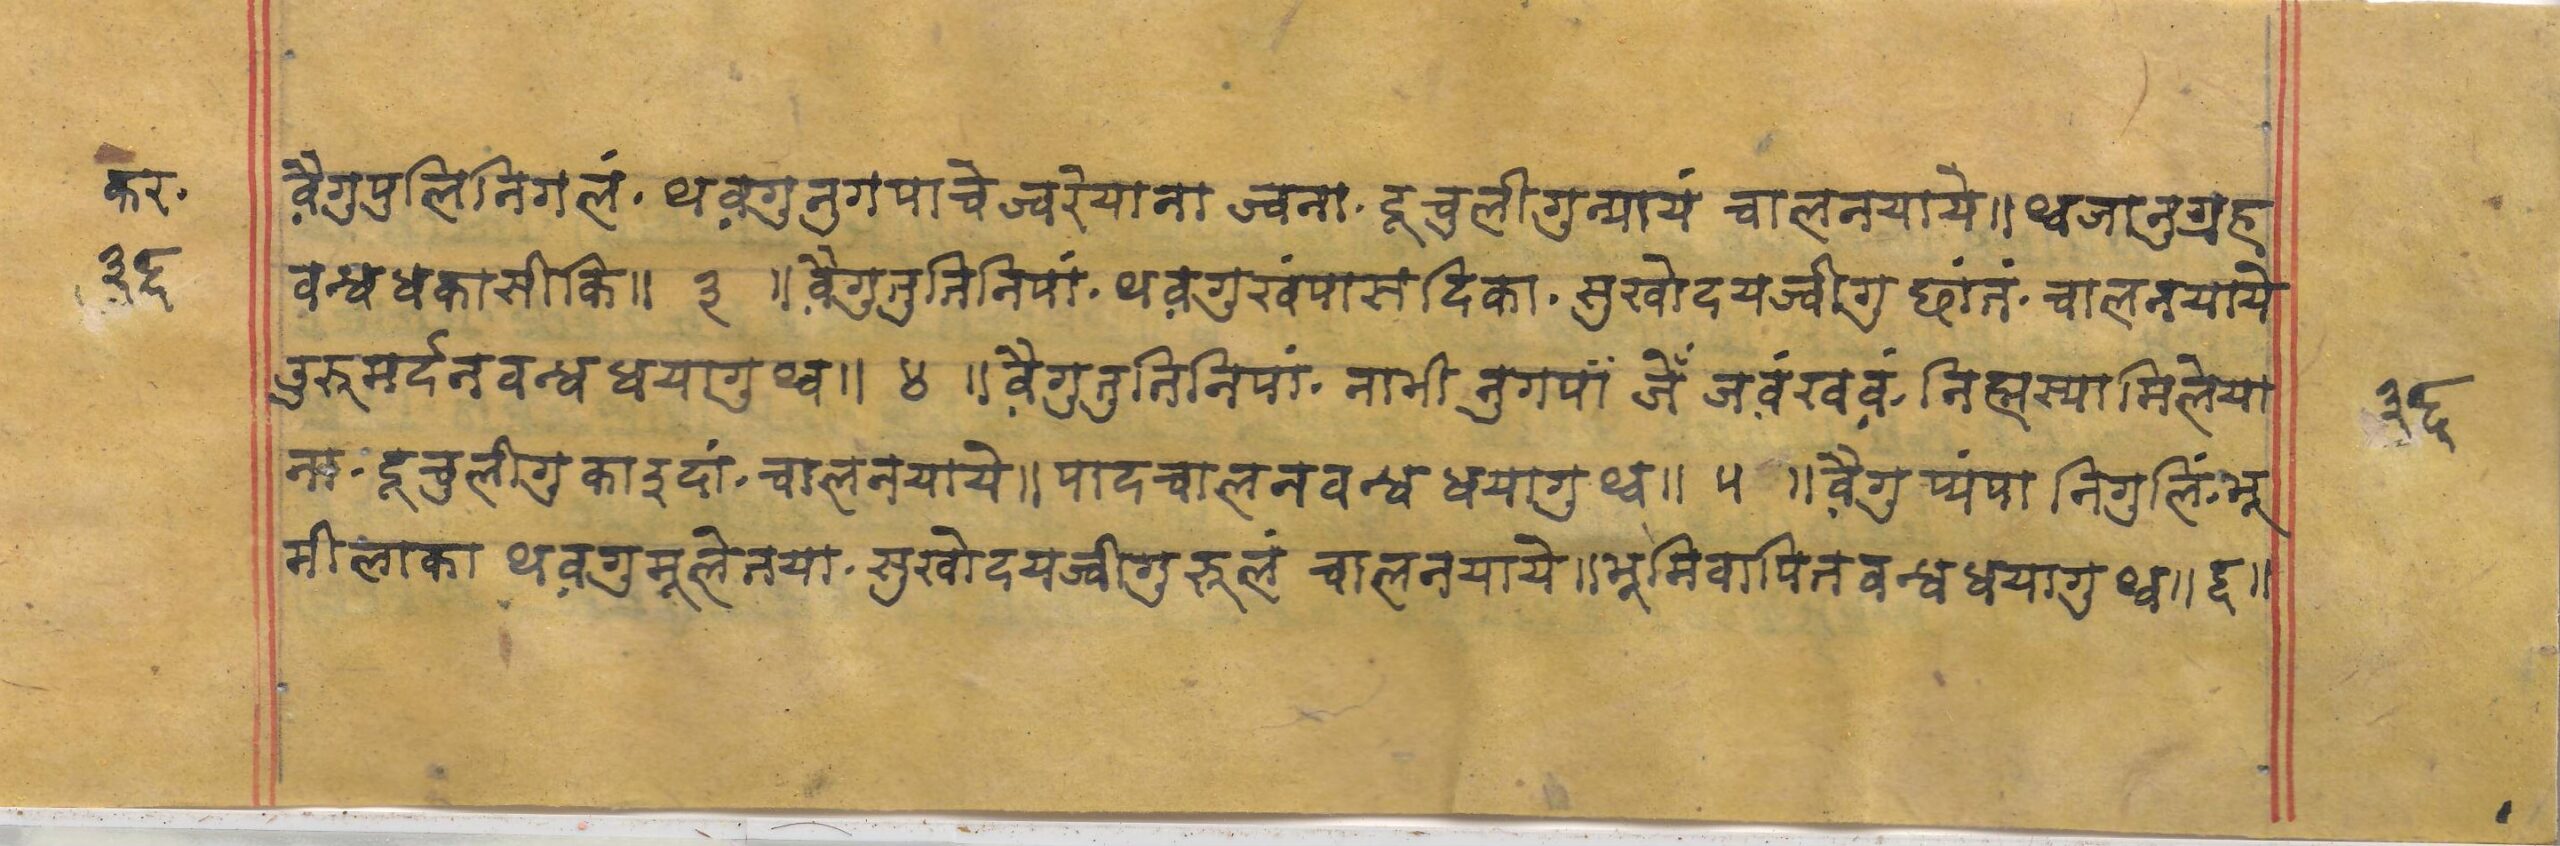 कर.
३६
व़ैगुपुलिनिगलं. थव़गुनुगपाचेज्वरेयाना ज्वना. दूचुलीगुन्यायं चालनयाये॥ थ्वजानुग्रह
वन्धधकासीकि॥ ३ ॥व़ैगुतुतिनिपां. थव़गुखंपासदिका. सुखोदयज्वीगु छांतं. चालनयाये
उरूमर्दनवन्धधयागुथ्व॥ ४ ॥व़ैगुतुतिनिपां. नाभी नुगपां जें जव़ंखव़ं. निह्मस्यामिलेया
ना. दूचुलीगु काइदां. चालनयाये॥ पादचालनवन्धधयागुथ्व॥ ५ ॥व़ैगु प्यंपा निगुलिं. भू
मीलाका थव़गुमूलेनया. सुखोदयज्वीगुरूलं चालनयाये॥भूमिवापितवन्धधयागुथ्व॥ ६॥
३६